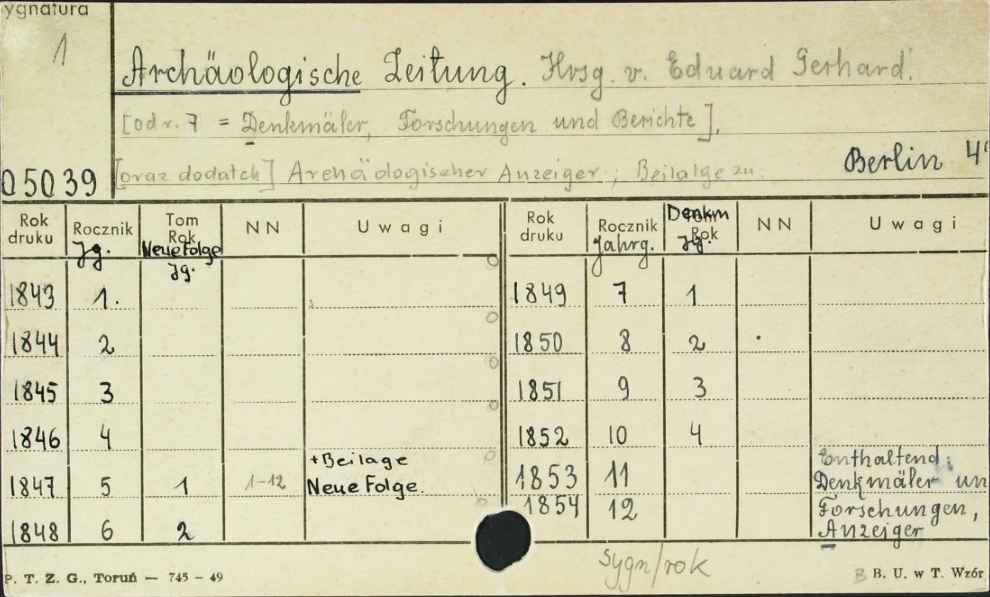 ygnatura
1
Archäologische Zeitung. Hrsg. v. Eduard Gerhard.
[od r. 7 = Denkmäler, Forschungen und Berichte],
[oraz dodatek] Archäologischer Anzeiger; Beilalge zu.
Berlin 4°
05039
Rok druku | Rocznik Jg. | Tom Rok Neue Folge Jg. | NN | Uwagi | Rok druku | Rocznik Jahrg. | Tom Rok Denkm Jg. | NN | Uwagi
1843 | 1. | | | | 1849 | 7 | 1
1844 | 2 | | | | 1850 | 8 | 2
1845 | 3 | | | | 1851 | 9 | 3
1846 | 4 | | | | 1852 | 10 | 4
1847 | 5 | 1 | 1-12 | +Beilage Neue Folge. | 1853 | 11 | | | Enthaltend: Denkmäler un
1848 | 6 | 2 | | | 1854 | 12 | | | Forschungen, Anzeiger
sygn/rok
P. T. Z. G., Toruń — 745 – 49
B B. U. w T. Wzór